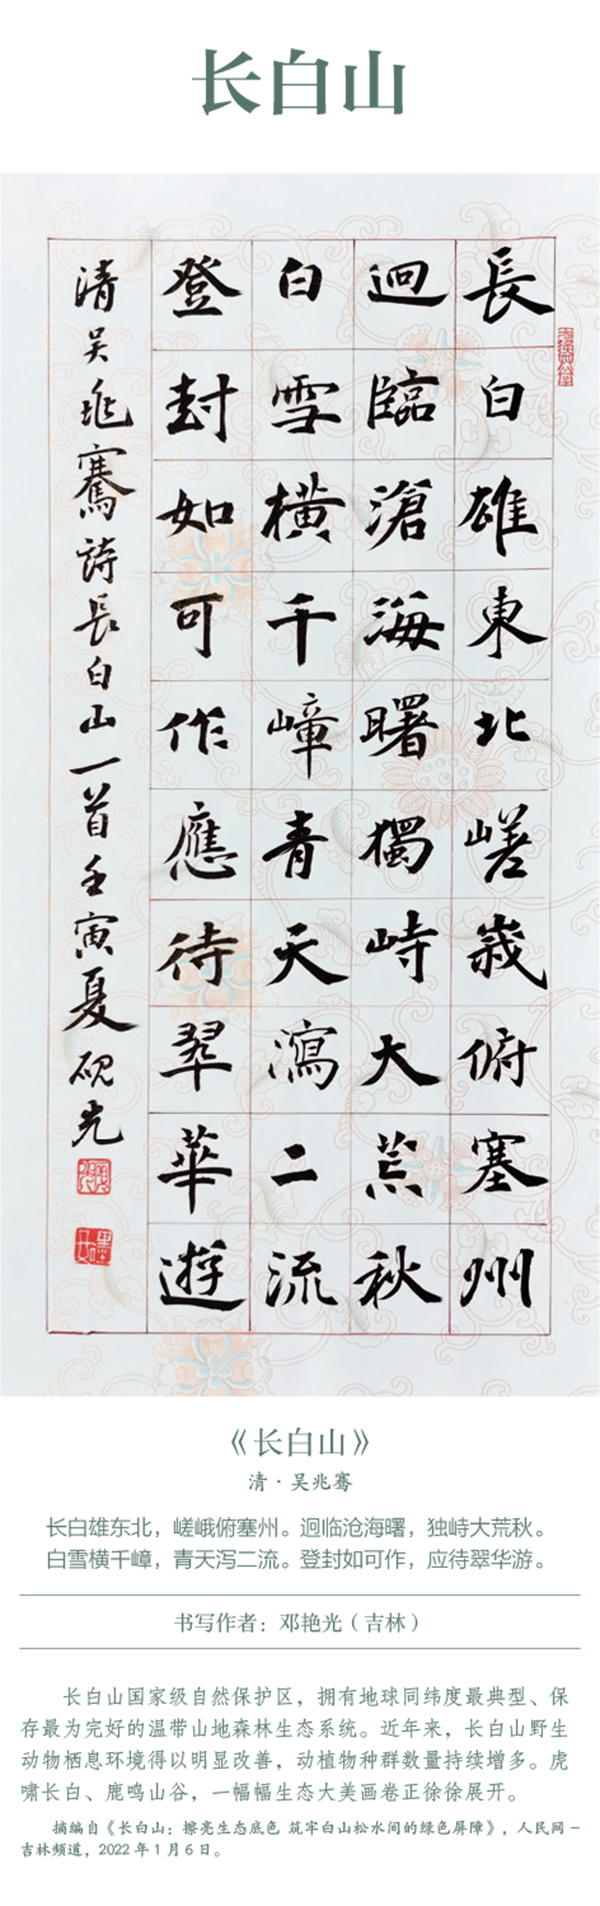 长白山
長白雄東北嵯峩俯塞州
迥臨滄海曙獨峙大荒秋
白雪橫千嶂青天瀉二流
登封如可作應待翠華遊
清吴兆騫詩長白山一首壬寅夏硯光
《长白山》
清·吴兆骞
长白雄东北，嵯峨俯塞州。迥临沧海曙，独峙大荒秋。
白雪横千嶂，青天泻二流。登封如可作，应待翠华游。
书写作者：邓艳光（吉林）
长白山国家级自然保护区，拥有地球同纬度最典型、保
存最为完好的温带山地森林生态系统。近年来，长白山野生
动物栖息环境得以明显改善，动植物种群数量持续增多。虎
啸长白、鹿鸣山谷，一幅幅生态大美画卷正徐徐展开。
摘编自《长白山：擦亮生态底色 筑牢白山松水间的绿色屏障》，人民网－
吉林频道，2022年1月6日。